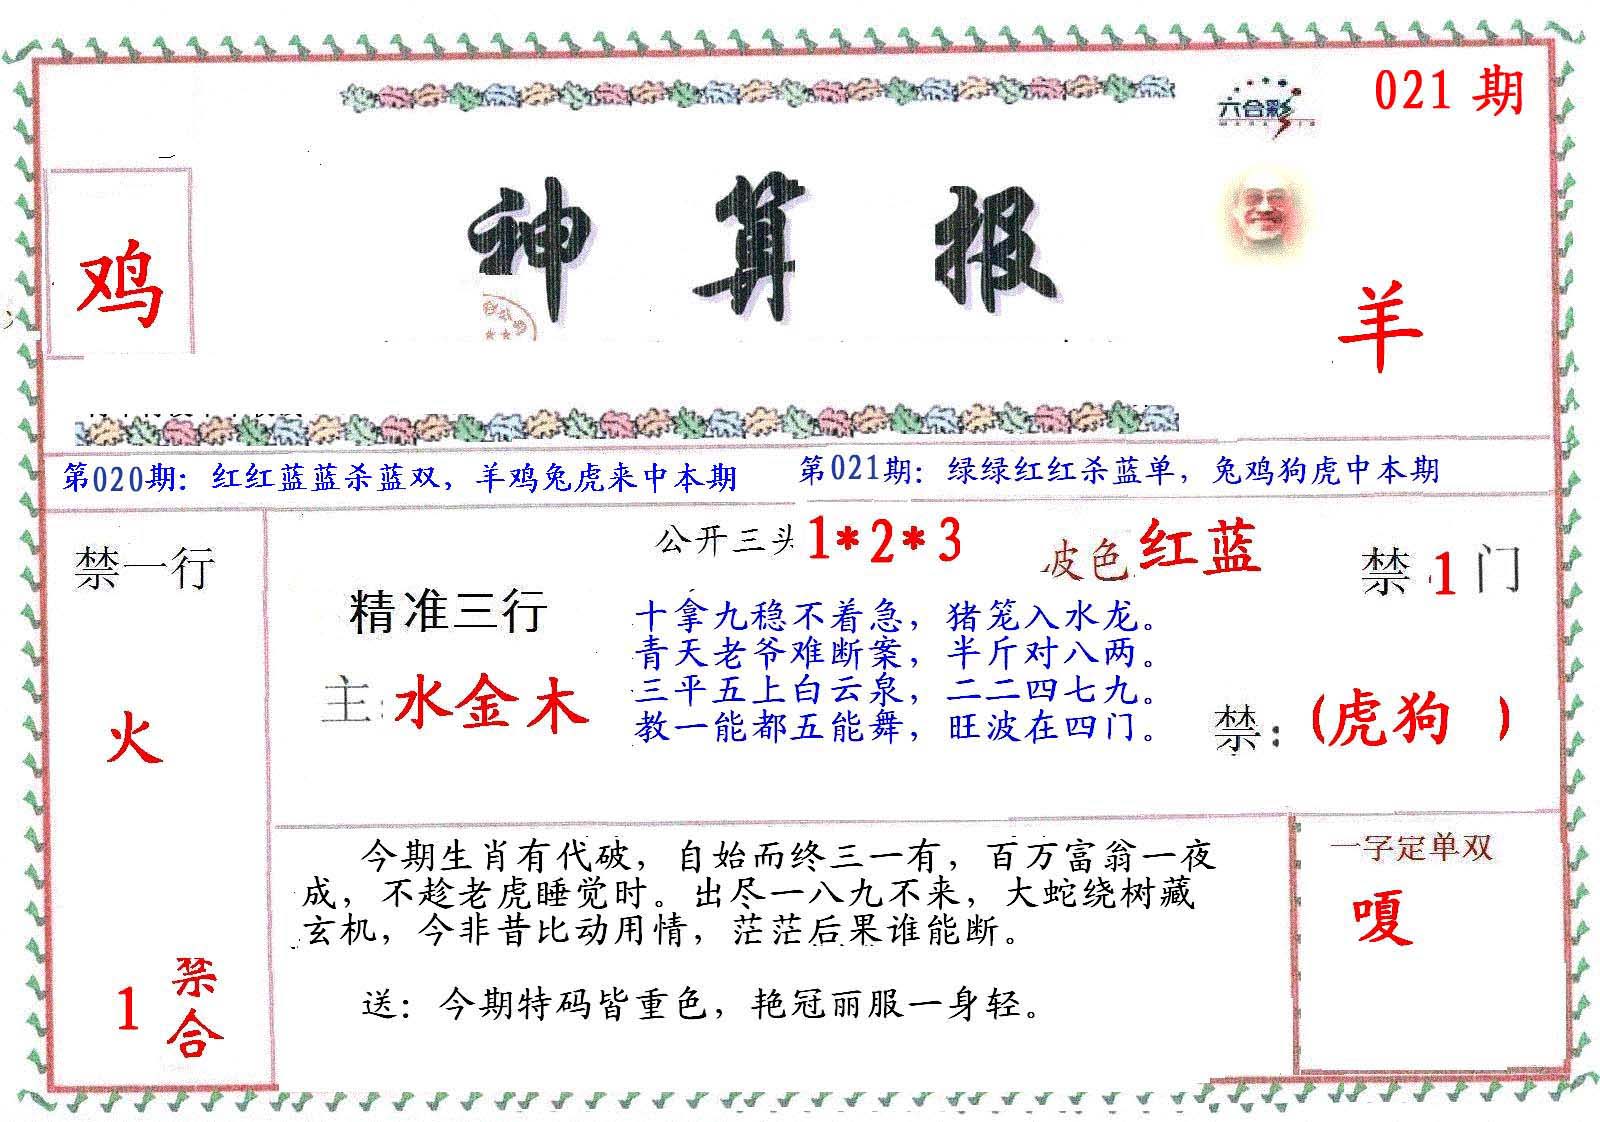 021 期
六合彩
神 算 报
鸡
羊
第020期：红红蓝蓝杀蓝双，羊鸡兔虎来中本期
第021期：绿绿红红杀蓝单，兔鸡狗虎中本期
禁一行
火
1 禁合
公开三头 1*2*3
波色 红蓝
禁 1 门
精准三行
主: 水金木
十拿九稳不着急，猪笼入水龙。
青天老爷难断案，半斤对八两。
三平五上白云泉，二二四七九。
教一能都五能舞，旺波在四门。
禁: (虎狗 )
今期生肖有代破，自始而终三一有，百万富翁一夜
成，不趁老虎睡觉时。出尽一八九不来，大蛇绕树藏
玄机，今非昔比动用情，茫茫后果谁能断。
送：今期特码皆重色，艳冠丽服一身轻。
一字定单双
嗄